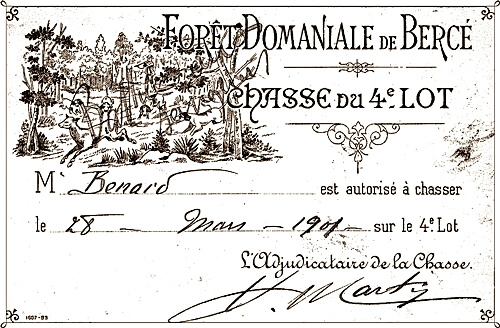 FORÊT DOMANIALE DE BERCÉ
CHASSE DU 4e LOT
Mr Benard est autorisé à chasser
le 28 Mars 1901 sur le 4e Lot
L'Adjudicataire de la Chasse.
H. Marty
1607-93